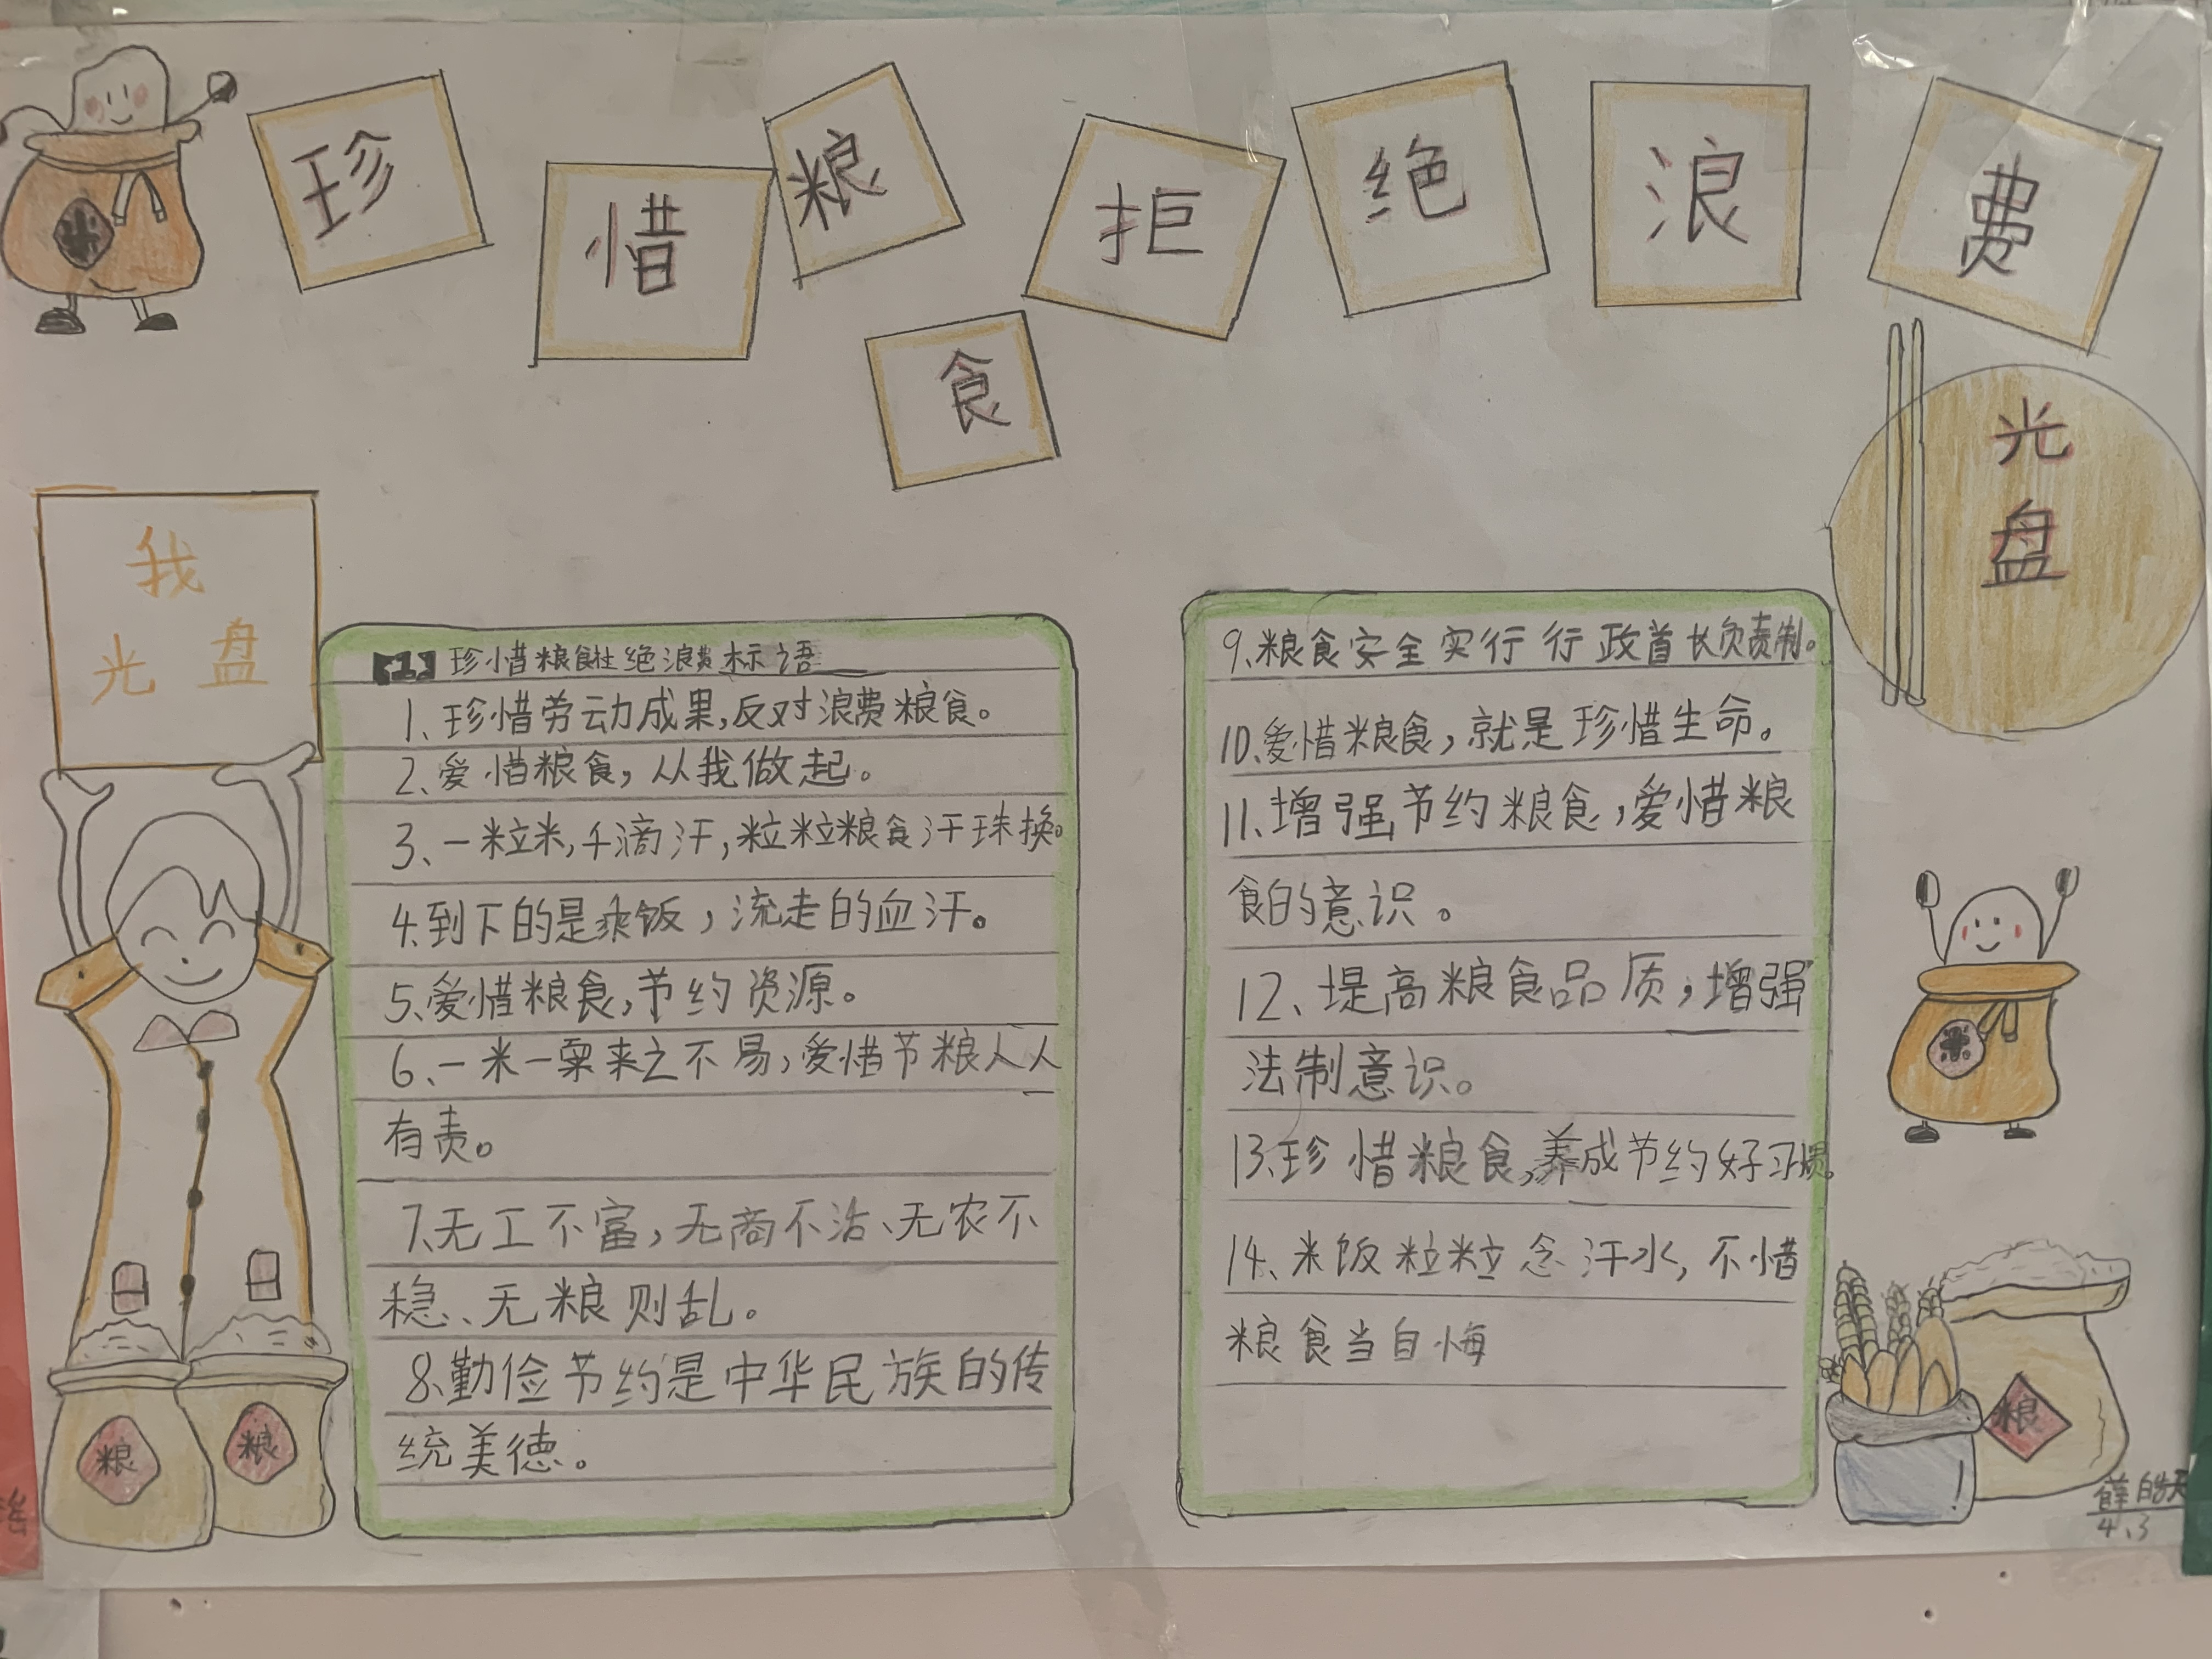 珍惜粮食拒绝浪费
光盘
我
光盘
珍惜粮食拒绝浪费标语
1、珍惜劳动成果,反对浪费粮食。
2、爱惜粮食,从我做起。
3、一粒米,千滴汗,粒粒粮食汗珠换。
4.到下的是剩饭,流走的血汗。
5、爱惜粮食,节约资源。
6、一米一粟来之不易,爱惜节粮人人
有责。
7、无工不富,无商不活、无农不
稳、无粮则乱。
8、勤俭节约是中华民族的传
统美德。
9、粮食安全实行行政首长负责制。
10、爱惜粮食,就是珍惜生命。
11、增强节约粮食,爱惜粮
食的意识。
12、堤高粮食品质,增强
法制意识。
13、珍惜粮食,养成节约好习惯。
14、米饭粒粒念汗水,不惜
粮食当自悔
米
米
粮
粮
粮
薛皓天
4、3